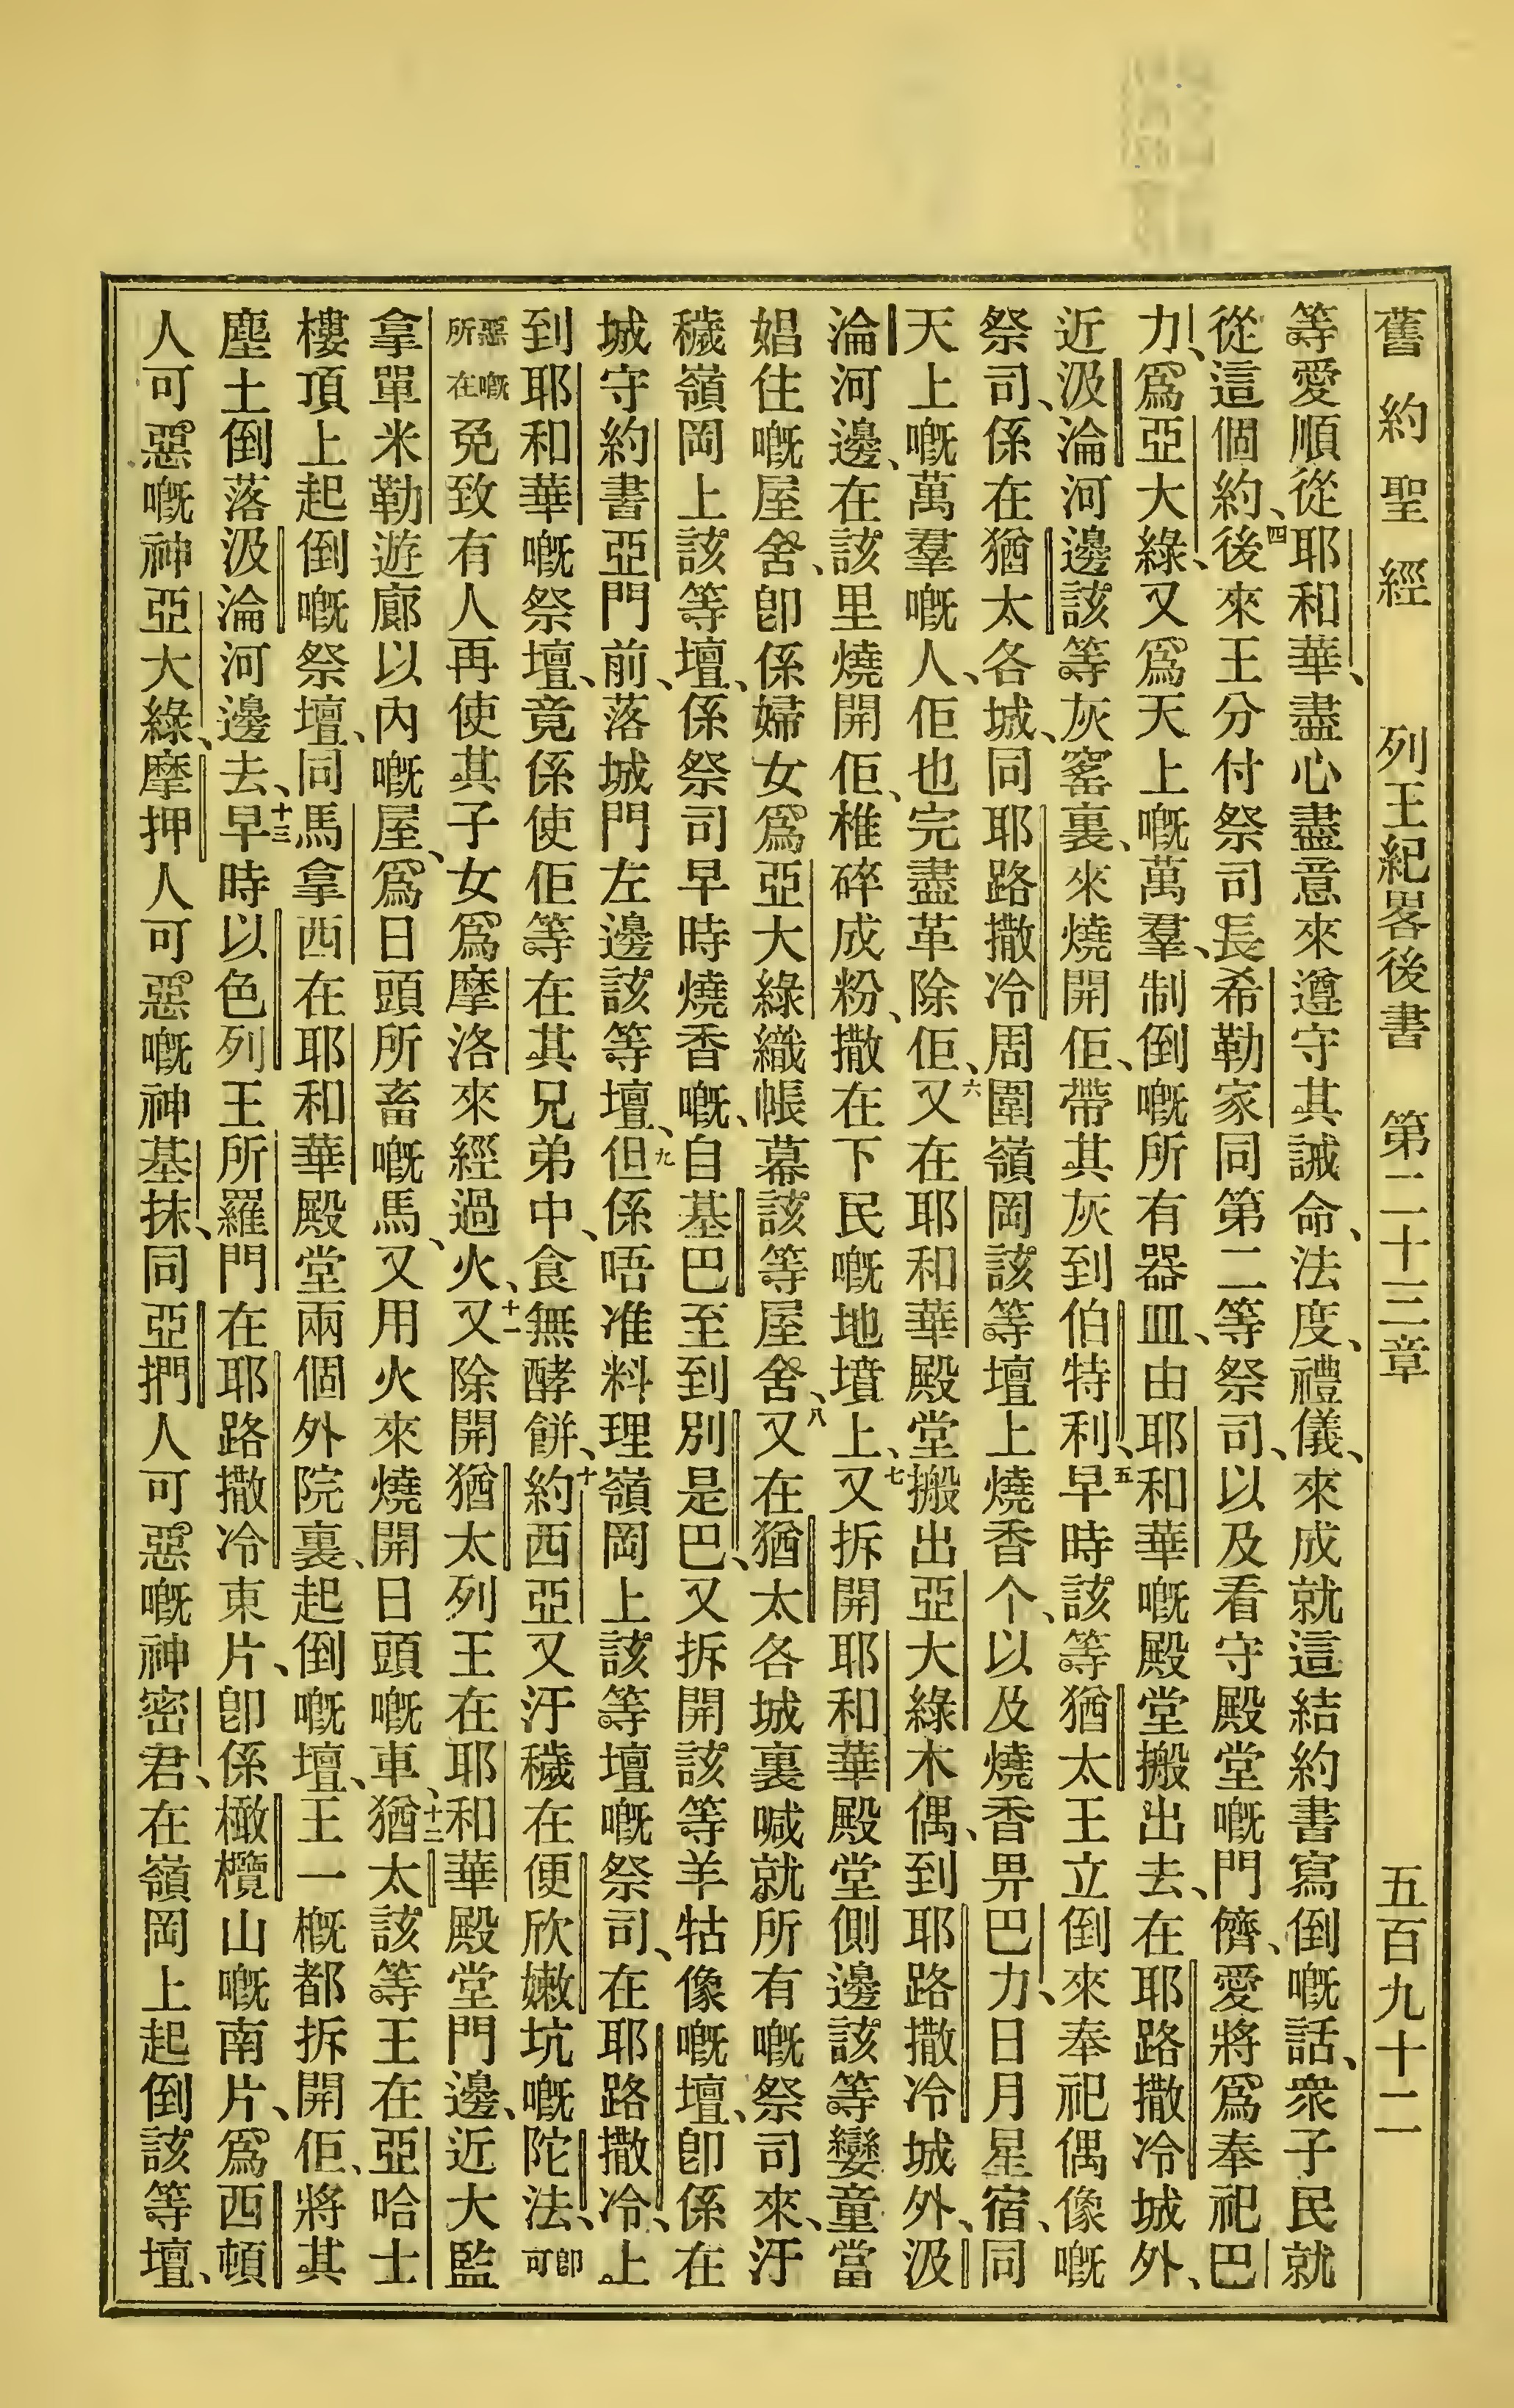 舊約聖經 列王紀畧後書 第二十三章 五百九十二
等愛順從耶和華、盡心盡意來遵守其誡命、法度、禮儀、來成就這結約書寫倒嘅話、衆子民就
從這個約、四後來王分付祭司長希勒家同第二等祭司、以及看守殿堂嘅門儕、愛將爲奉祀巴
力、爲亞大綠、又爲天上嘅萬羣、制倒嘅所有器皿、由耶和華嘅殿堂搬出去、在耶路撒冷城外、
近汲淪河邊該等灰窰裏、來燒開佢、帶其灰到伯特利、五早時該等猶太王立倒來奉祀偶像嘅
祭司、係在猶太各城、同耶路撒冷周圍嶺岡該等壇上燒香个、以及燒香畀巴力、日月星宿、同
天上嘅萬羣嘅人、佢也完盡革除佢、六又在耶和華殿堂搬出亞大綠木偶、到耶路撒冷城外、汲
淪河邊、在該里燒開佢、椎碎成粉、撒在下民嘅地墳上、七又拆開耶和華殿堂側邊該等孌童當
娼住嘅屋舍、卽係婦女爲亞大綠織帳幕該等屋舍、八又在猶太各城裏喊就所有嘅祭司來、汙
穢嶺岡上該等壇、係祭司早時燒香嘅、自基巴至到別是巴、又拆開該等羊牯像嘅壇、卽係在
城守約書亞門前、落城門左邊該等壇、九但係唔准料理嶺岡上該等壇嘅祭司、在耶路撒冷、上
到耶和華嘅祭壇、竟係使佢等在其兄弟中、食無酵餅、十約西亞又汙穢在便欣嫩坑嘅陀法、卽可
惡嘅所在免致有人再使其子女爲摩洛來經過火、十一又除開猶太列王在耶和華殿堂門邊、近大監
拿單米勒遊廊以內嘅屋、爲日頭所畜嘅馬、又用火來燒開日頭嘅車、十二猶太該等王在亞哈士
樓頂上起倒嘅祭壇、同馬拿西在耶和華殿堂兩個外院裏、起倒嘅壇、王一概都拆開佢、將其
塵土倒落汲淪河邊去、十三早時以色列王所羅門在耶路撒冷東片、卽係橄欖山嘅南片、爲西頓
人可惡嘅神亞大綠、摩押人可惡嘅神基抹、同亞捫人可惡嘅神密君、在嶺岡上起倒該等壇、